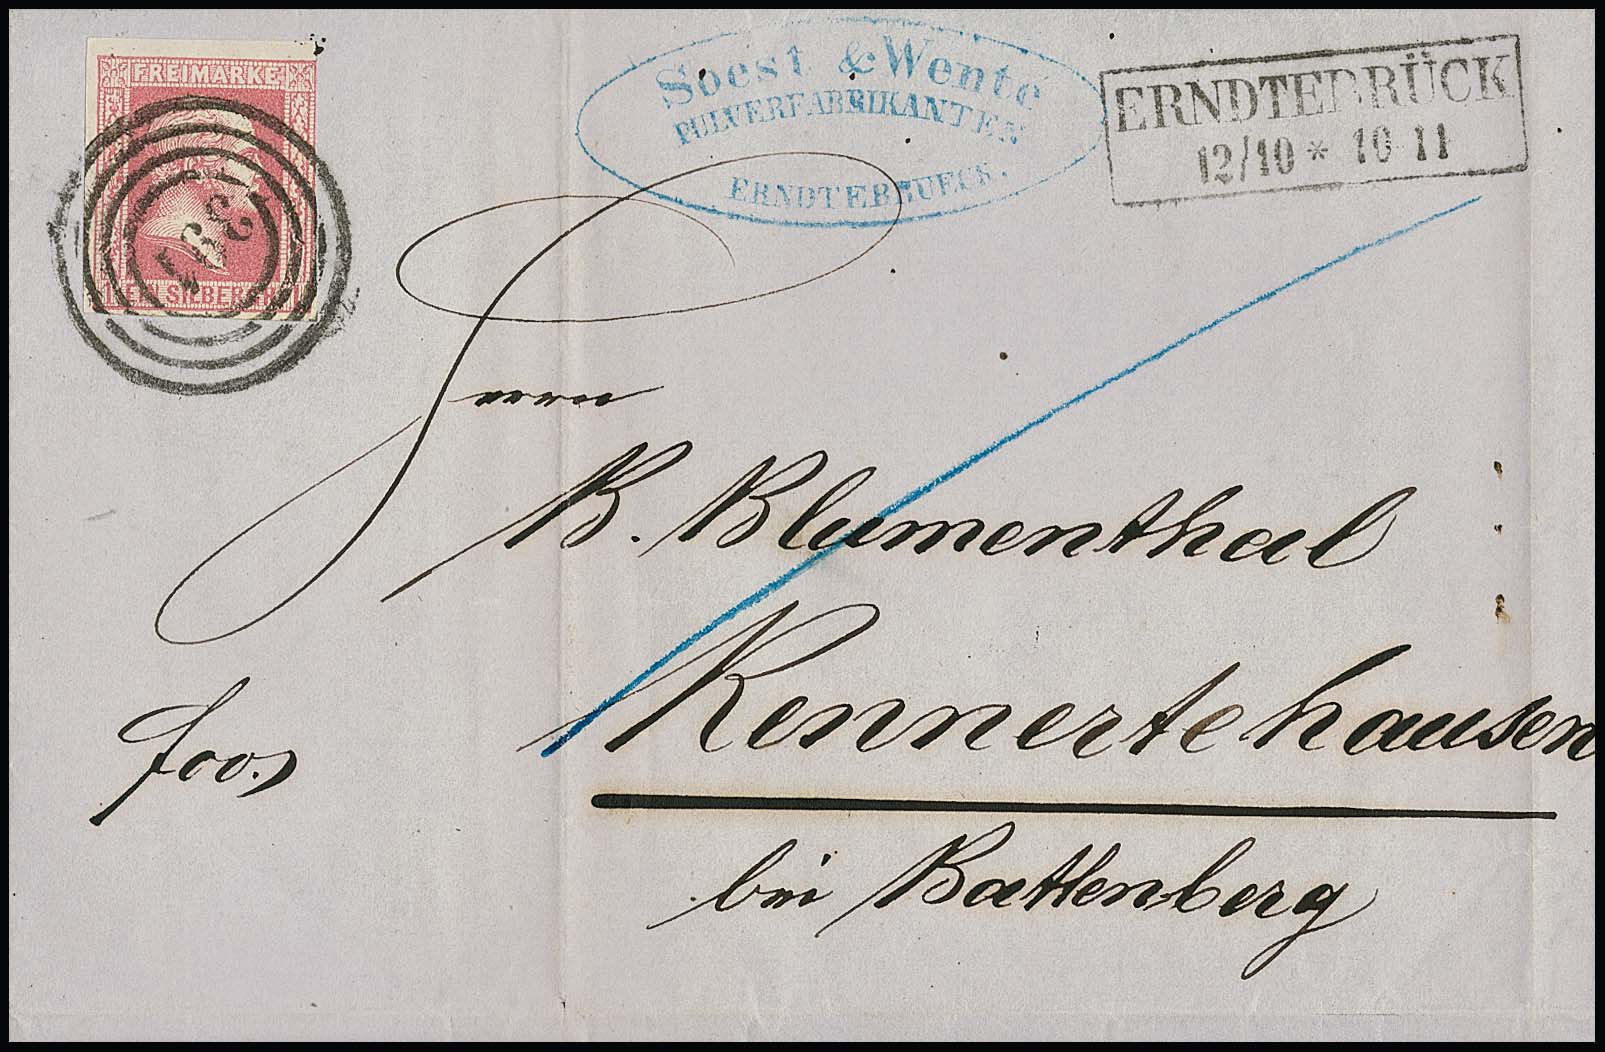 FREIMARKE
391
EIN SILBERGR.
Soest & Wente
PULVERFABRIKANTEN
ERNDTEBRUECK.
ERNDTEBRÜCK
12/10 * 10-11
Herrn
B. Blumenthal
Rennertehausen
bei Battenberg